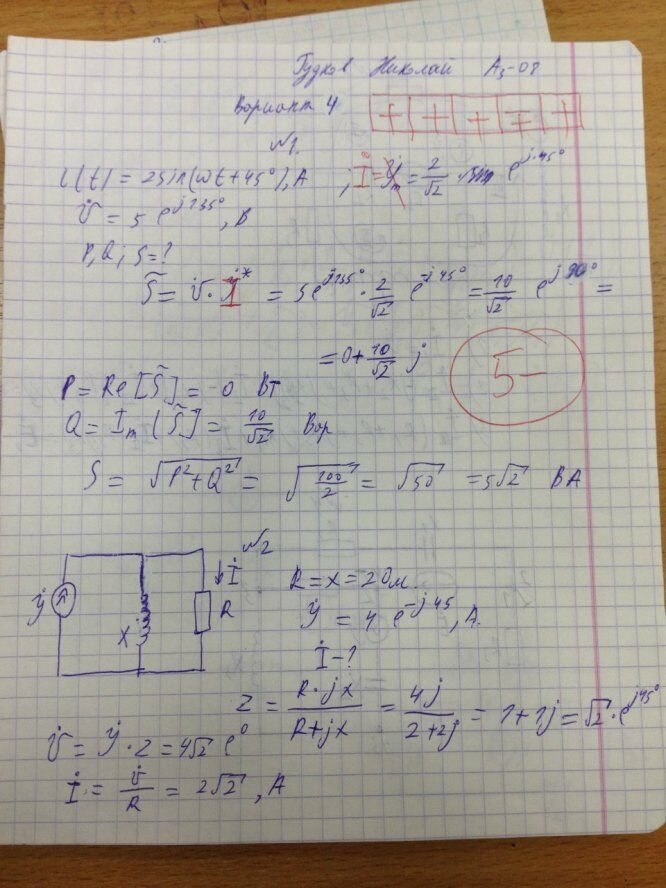 Гудков Николай А3-08
Вариант 4
+ + + + +
№1.
i(t) = 2sin(ωt+45°), А ; İ = = 2/√2 e^(j·45°)
U̇ = 5 e^(j135°), В
P, Q, S = ?
S̃ = U̇ · İ* = 5e^(j135°) · 2/√2 e^(-j45°) = 10/√2 e^(j90°) =
= 0 + 10/√2 j
5-
P = Re[S̃] = 0 Вт
Q = Im(S̃] = 10/√2 Вар
S = √(P²+Q²) = √(100/2) = √50 = 5√2 ВА
№2
J̇ X İ R
R = X = 2 Ом.
J̇ = 4 e^(-j45), А.
İ - ?
Z = (R·jx)/(R+jx) = 4j/(2+2j) = 1+1j = √2 · e^(j45°)
U̇ = J̇ · Z = 4√2 e^0
İ = U̇/R = 2√2, А